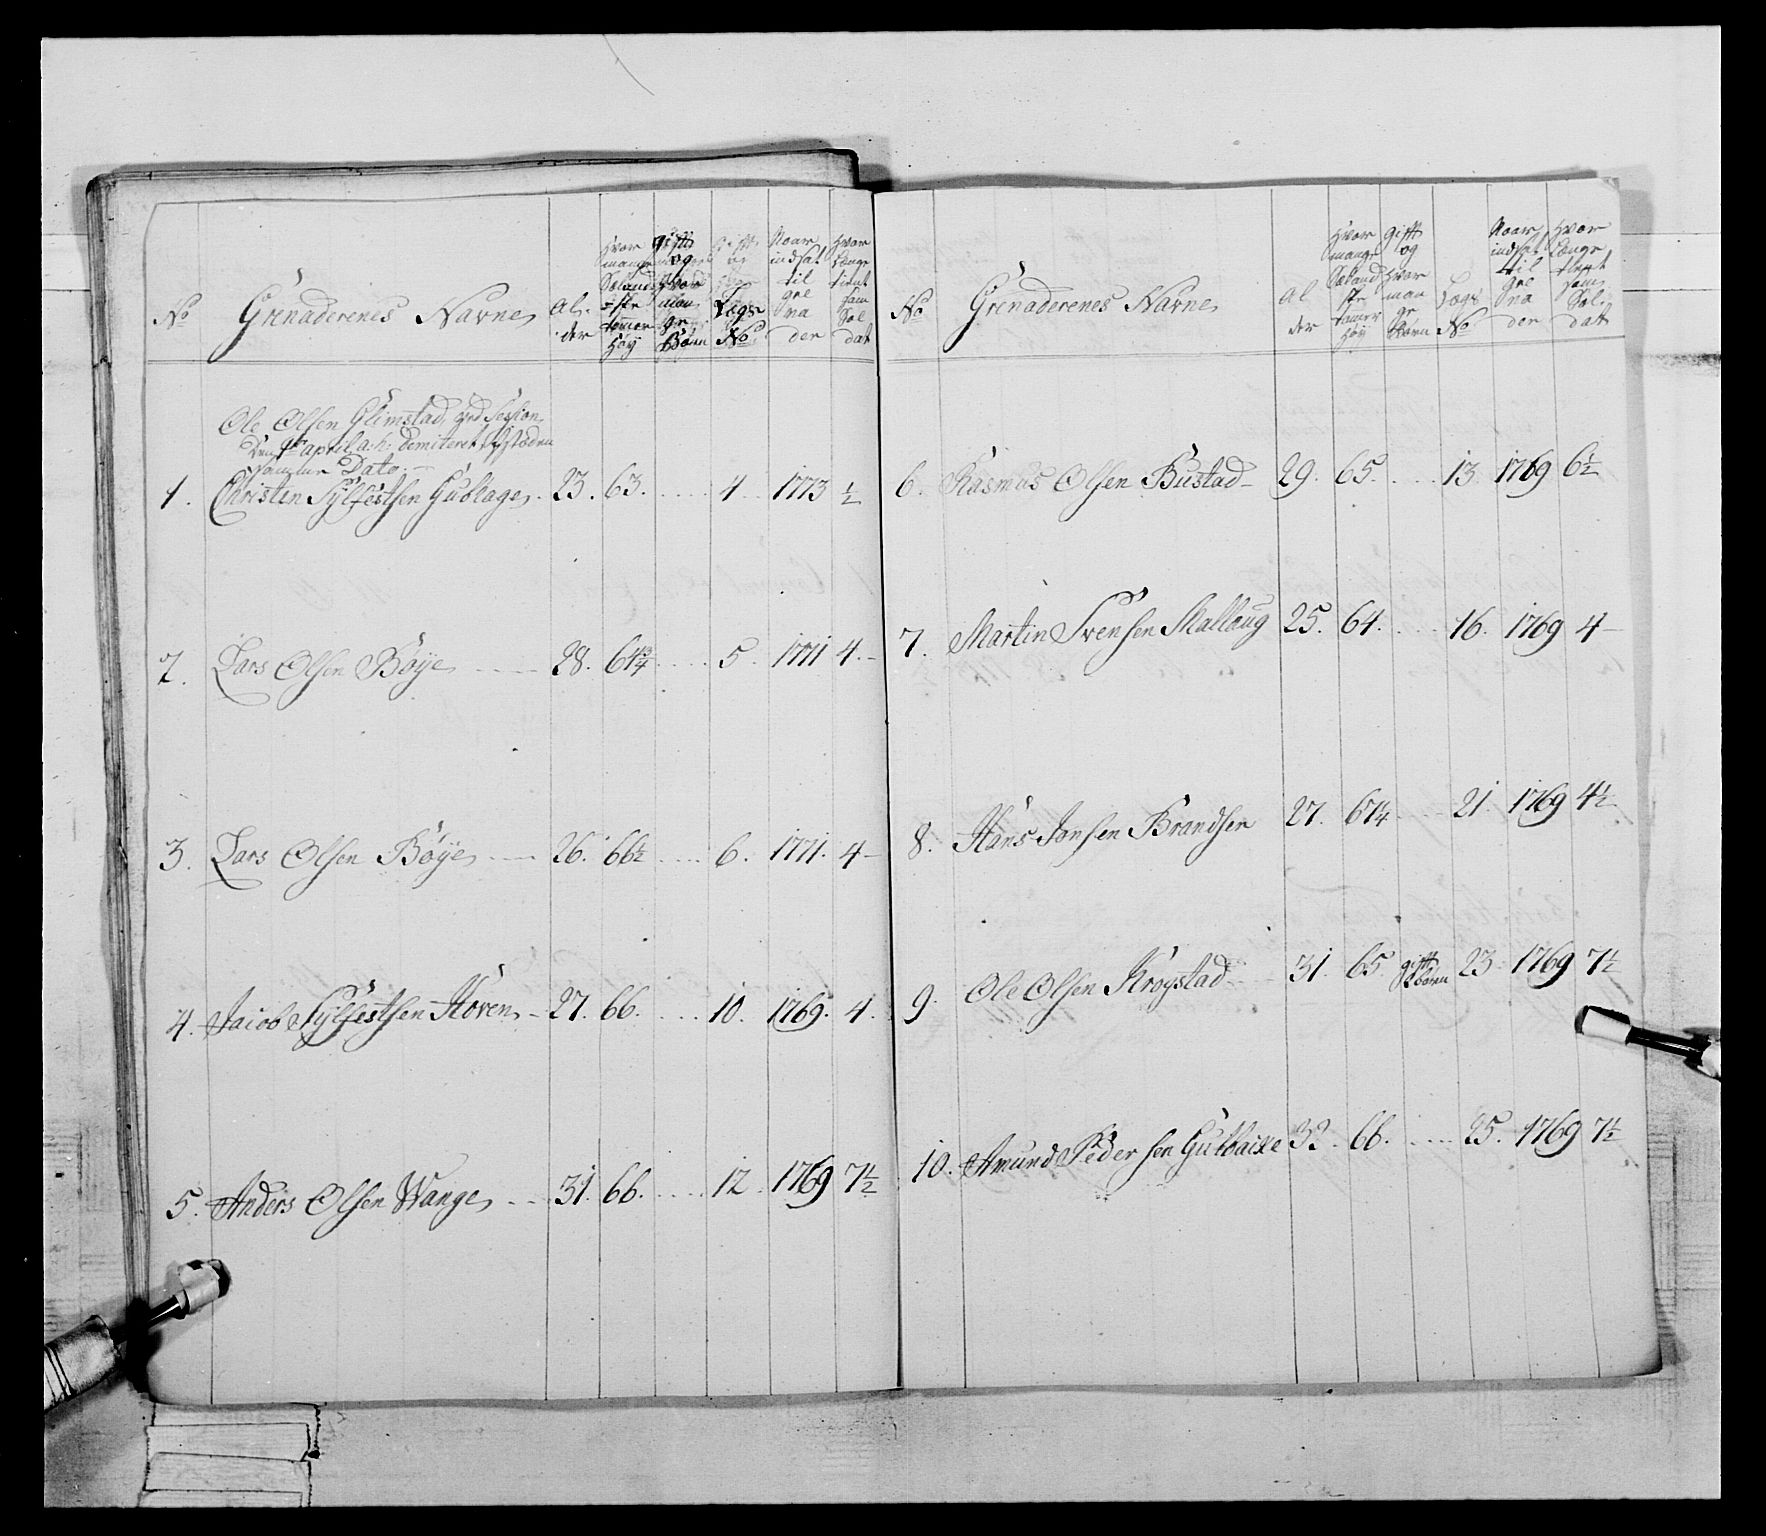 No
Grenaderenes Navne
Al-
der
Hvor
mange
Sælands
ste
tomer
Høÿ
gifft
og
Hvor
man
ge
Børn
Lægs
No
Naar
indsat
til
gre
na
der
Hvor
Længe
tient
som
Sol
dat
Ole Olsen Glimstad, ved Session
Den april a.h. demiteret
samme Dato
1. Christen Sÿlfestsen Gublage 23. 63. 4 1773 ½
2. Lars Olsen Böÿe 28. 64¾ 5 1771 4.
3. Lars Olsen Böÿe 26. 66½ 6. 1771. 4
4. Jacob Sÿlfestsen Hoven 27. 66. 10. 1769. 4.
5. Anders Olsen Wange 31. 66. 12. 1769 7½
No
Grenaderenes Navne
Al
der
Hvor
mange
Sæland
ste
tomer
høÿ
gifft
og
Hvor
man
ge
Børn
Lægs
No
Naar
indsat
til
gre
na
der
Hvor
Længe
tient
som
Sol-
dat
6. Rasmus Olsen Bustad 29. 65. 13 1769 6½
7. Martin Svensen Mallaug 25. 64. 16. 1769 4
8. Hans Jansen Brandsen 27. 67¼ 21. 1769 4½
9. Ole Olsen Krogstad 31. 65 gifft 2 børn 23 1769 7½
10. Amund Pedersen Gutbacke 32. 66. 25. 1769 7½